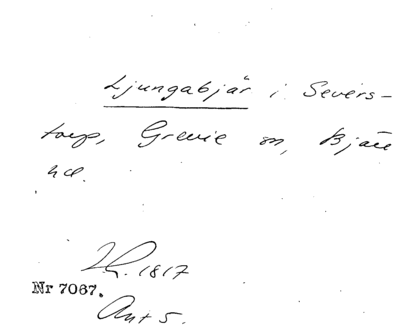 Ljungabjär i Severs-
torp, Grevie sn, Bjäre
hd.
Lh. 1817
Nr 7067.
Ant 5.